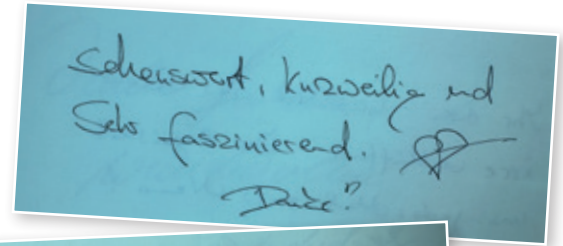 Sehenswert, kurzweilig und
Sehr faszinierend.
Danke!